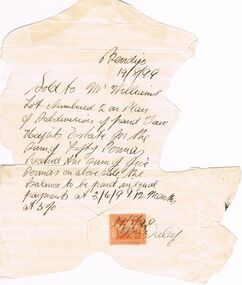 Bendigo
19/8/99
Sold to Mr Williams
Lot Numbered 2 on Plan
of Subdivision of Grand View
Heights Estate for the
Sum of Fifty Pounds
Received the Sum of five
Pounds on above sale the
Balance to be paid in equal
payments at 3/6/9 & 12 Months
at 5%
19/8/99